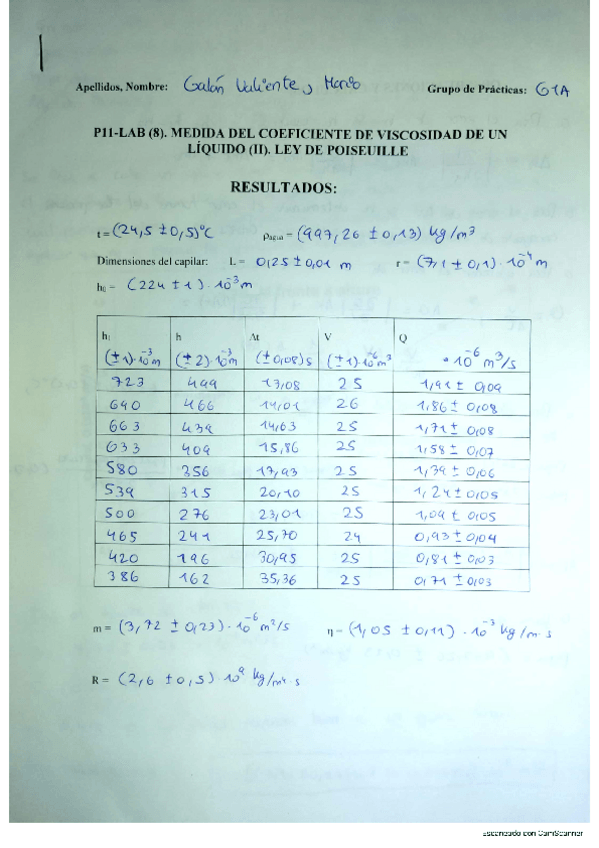 Apellidos, Nombre: Galán Valiente, Mario Grupo de Prácticas: G1A
P11-LAB (8). MEDIDA DEL COEFICIENTE DE VISCOSIDAD DE UN
LÍQUIDO (II). LEY DE POISEUILLE
RESULTADOS:
t = (24,5 ± 0,5)ºC ρagua = (997,26 ± 0,13) kg/m³
Dimensiones del capilar: L = 0,25 ± 0,01 m r = (7,1 ± 0,1)·10⁻⁴ m
h₀ = (224 ± 1)·10⁻³ m
h₁ h Δt V Q
(±1)·10⁻³m (±2)·10⁻³m (±0,08)s (±1)·10⁻⁶m³ ·10⁻⁶ m³/s
723 499 13,08 25 1,91 ± 0,09
690 466 14,01 26 1,86 ± 0,08
663 439 14,63 25 1,71 ± 0,08
633 409 15,86 25 1,58 ± 0,07
580 356 17,93 25 1,39 ± 0,06
539 315 20,10 25 1,24 ± 0,05
500 276 23,01 25 1,09 ± 0,05
465 241 25,70 24 0,93 ± 0,04
420 196 30,95 25 0,81 ± 0,03
386 162 35,36 25 0,71 ± 0,03
m = (3,72 ± 0,23)·10⁻⁶ m²/s η = (1,05 ± 0,11)·10⁻³ kg/m·s
R = (2,6 ± 0,5)·10⁹ kg/m⁴·s
Escaneado con CamScanner